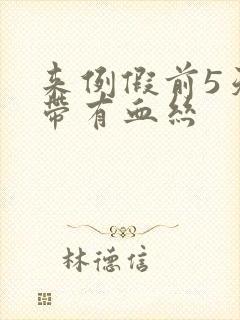 来例假前5天
带有血丝
林德信